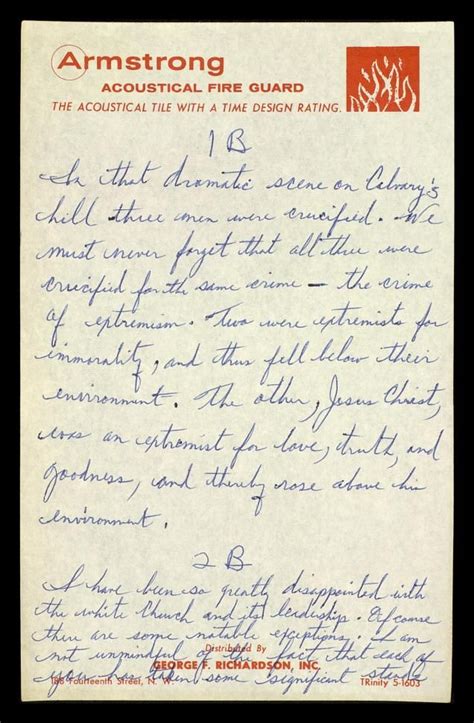 Armstrong
ACOUSTICAL FIRE GUARD
THE ACOUSTICAL TILE WITH A TIME DESIGN RATING.
1B
In that dramatic scene on Calvary's
hill three men were crucified. We
must never forget that all three were
crucified for the same crime — the crime
of extremism. Two were extremists for
immorality, and thus fell below their
environment. The other, Jesus Christ,
was an extremist for love, truth, and
goodness, and thereby rose above his
environment.
2B
I have been so greatly disappointed with
the white Church and its leadership. Of course
there are some notable exceptions. I am
not unmindful of the fact that each of
you has taken some significant stands
Distributed By
GEORGE F. RICHARDSON, INC.
Fourteenth Street, N. W.
TRinity 5-1603